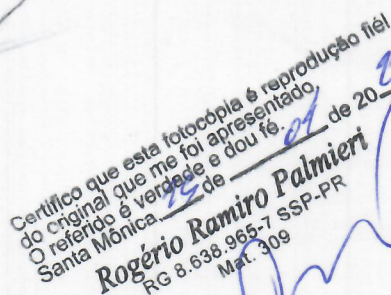 Certifico que esta fotocópia é reprodução fiél
do original que me foi apresentado.
O referido é verdade e dou fé.
Santa Mônica, de 01 de 20
Rogério Ramiro Palmieri
RG 8.638.965-7 SSP-PR
Mat. 309